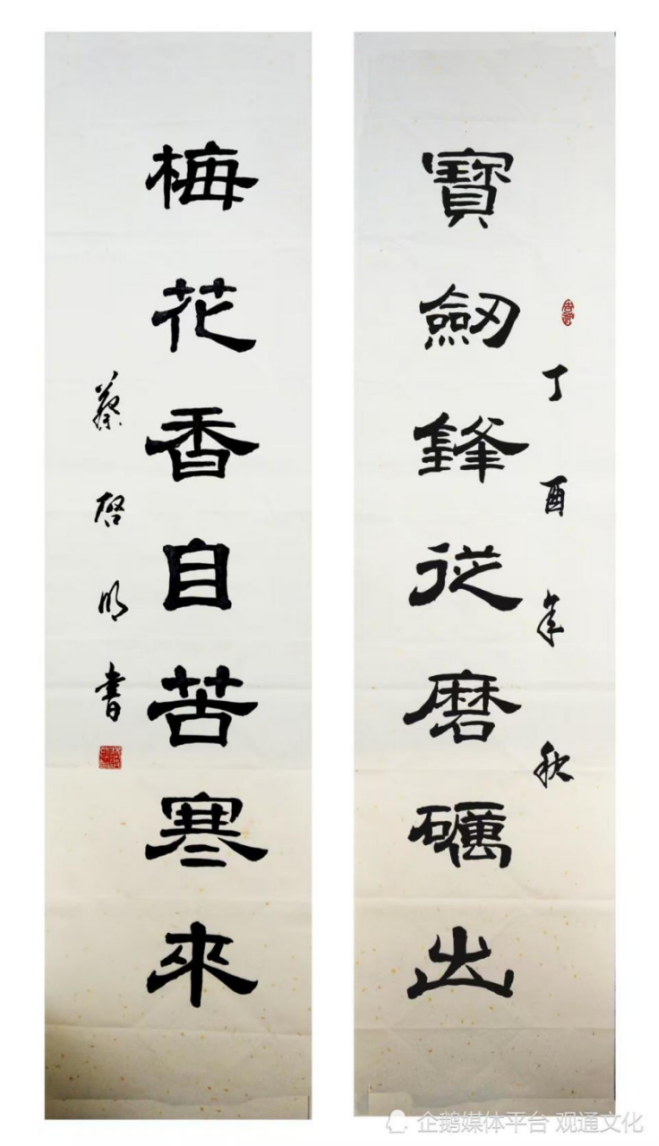 寶劒鋒從磨礪出
丁酉年秋
梅花香自苦寒來
蔡啓明書
企鹅媒体平台 观通文化